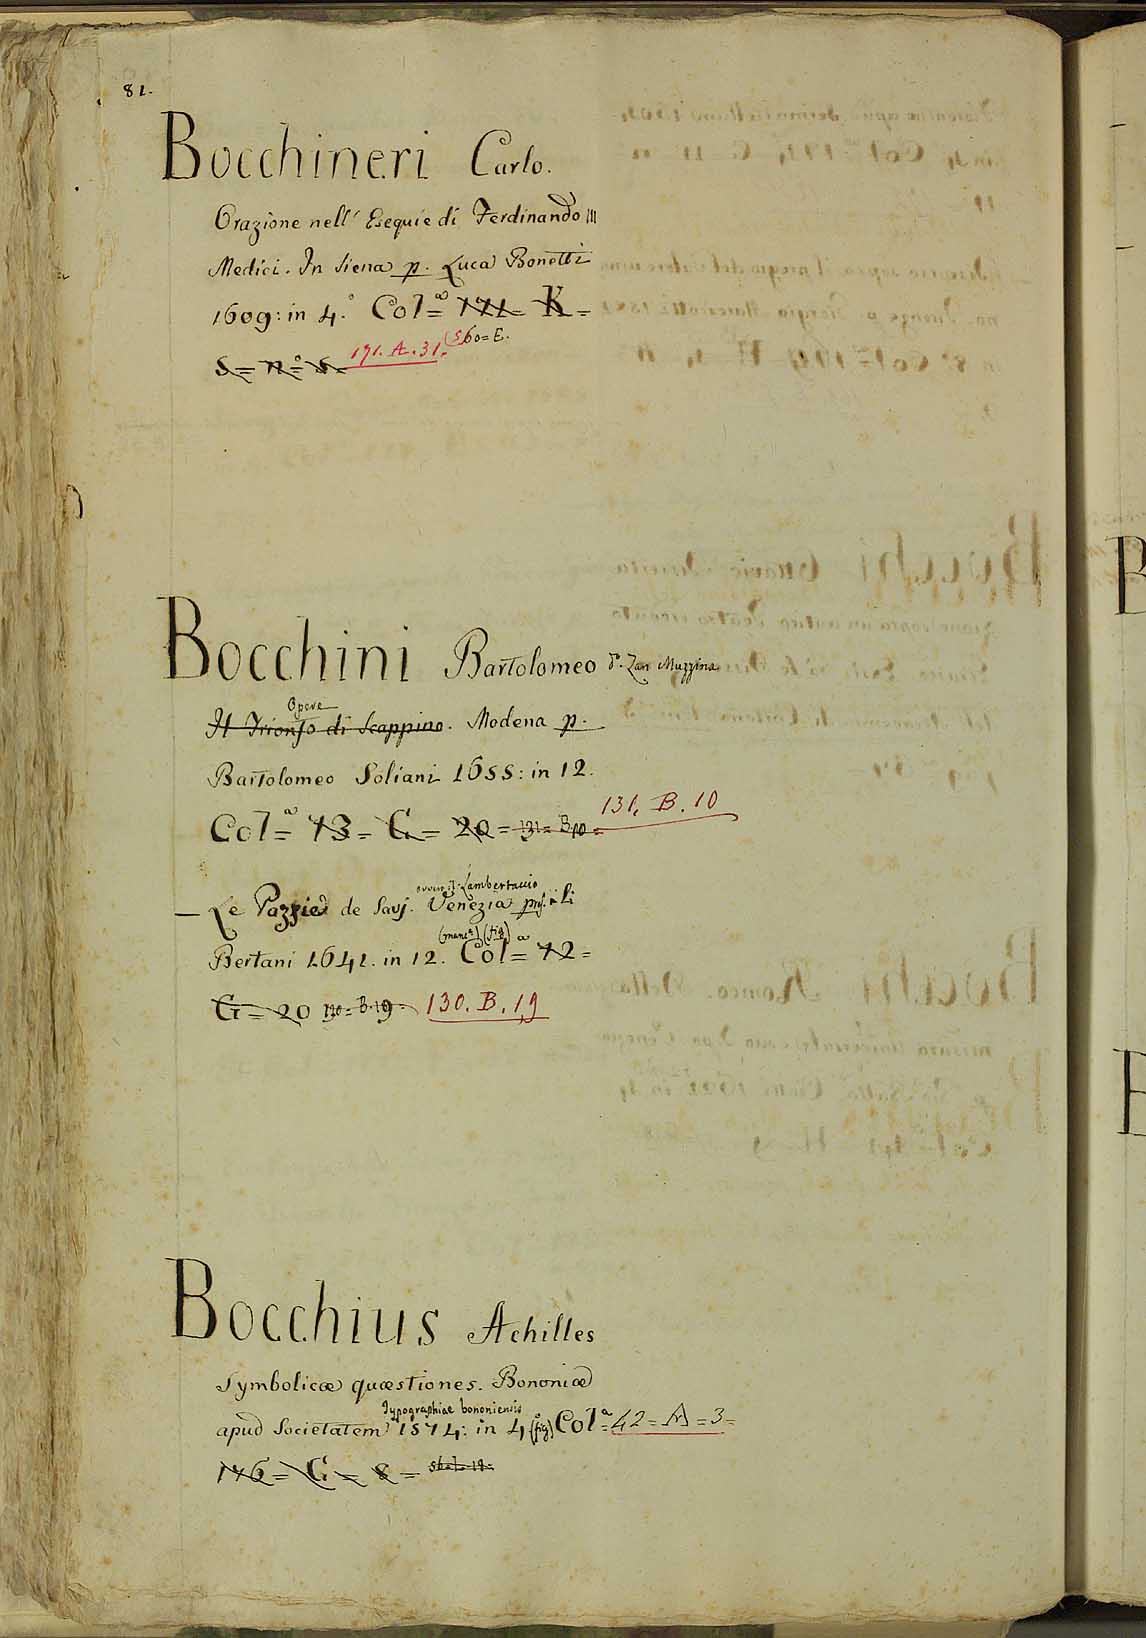 81.
Bocchineri Carlo.
Orazione nell' Esequie di Ferdinando III
Medici. In Siena p. Luca Bonetti
1609: in 4.° Col.ª 171 = K =
60=E.
S = n.° 8. 191. A. 31.
Bocchini Bartolomeo d.° Zan Muzzina
Opere
Il Trionfo di Scappino. Modena p.
Bartolomeo Soliani 1655: in 12.
Col.ª 73 = G = 20 = 131 = B 10 = 131. B. 10
ovvero Il Lambertaccio
— Le Pazzie de Savj. Venezia li
(manca) (fig.)
Bertani 1641. in 12. Col.ª 72 =
G = 20 130 = B. 19. 130. B. 19
Bocchius Achilles
Symbolicæ quæstiones. Bononiæ
Typographiae bononiensis
apud Societatem 1574: in 4.° (fig) Col.ª 42 = A = 3 =
176 = G = 8 =